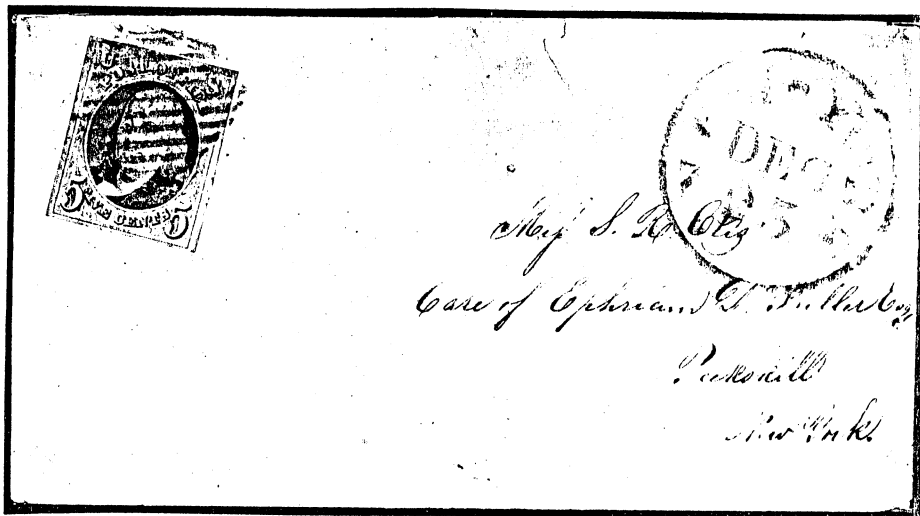 POST OFFICE
FIVE CENTS
5 5
DEC
23
Miss S. R.
Care of Ephriam D. Fuller Esq
Peekskill
New York